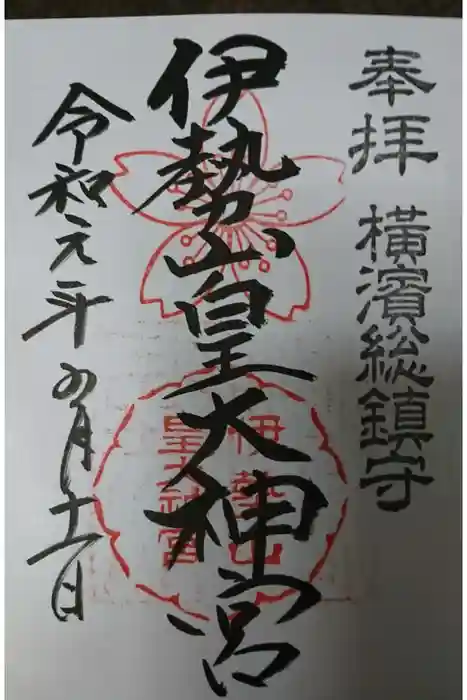 奉拝 横濱総鎮守
伊勢山皇大神宮
伊勢山
皇大神宮
令和元年九月十一日